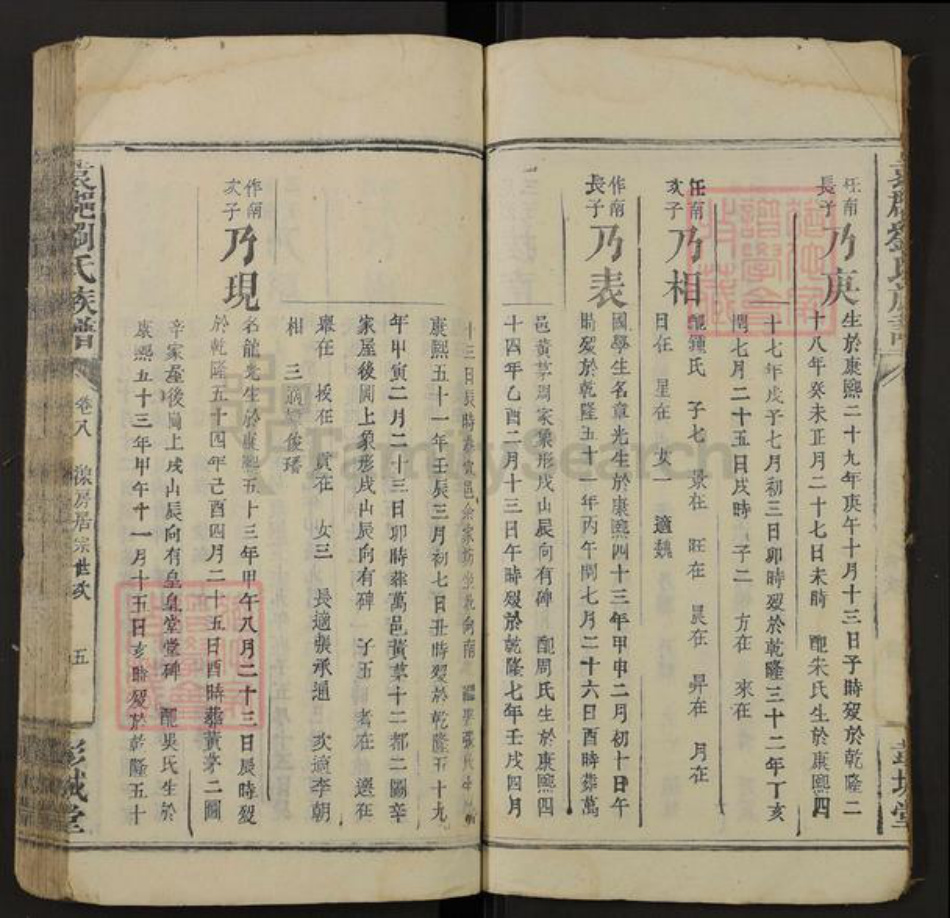 任南
長子
乃庚
生於康熙二十九年庚午十月十三日子時歿於乾隆二
十八年癸未正月二十七日未時 配朱氏生於康熙四
十七年戊子七月初三日卯時歿於乾隆三十二年丁亥
閏七月二十五日戌時 子二 方在 來在
任南
次子
乃相
配鍾氏 子七 景在 旺在 昃在 昇在 月在
日在 星在 女一 適魏
作南
長子
乃表
國學生名章光生於康熙四十三年甲申二月初十日午
時歿於乾隆五十一年丙午閏七月二十六日酉時葬萬
邑黃茅周家業形戌山辰向有碑 配周氏生於康熙四
十四年乙酉二月十三日午時歿於乾隆七年壬戌四月
十三日辰時葬萬邑余家坊坐北向南
康熙五十一年壬辰三月初七日丑時歿於乾隆五十九
年甲寅二月二十三日卯時葬萬邑黃茅十二都二圖辛
家屋後岡上象形戌山辰向有碑 子五 耆在 選在
環在 技在 貢在 女三 長適張承通 次適李朝
相 三適 俊璠
作南
次子
乃現
名龍光生於康熙五十三年甲午八月二十三日辰時歿
於乾隆五十四年己酉四月二十五日酉時葬黃茅二圖
辛家屋後岡上戌山辰向有皇皇堂堂碑 配吳氏生於
康熙五十三年甲午十一月十五日亥時歿於乾隆五十
袁郡劉氏族譜
卷八
深房居宗世次
五
彭城堂
FamilySearch